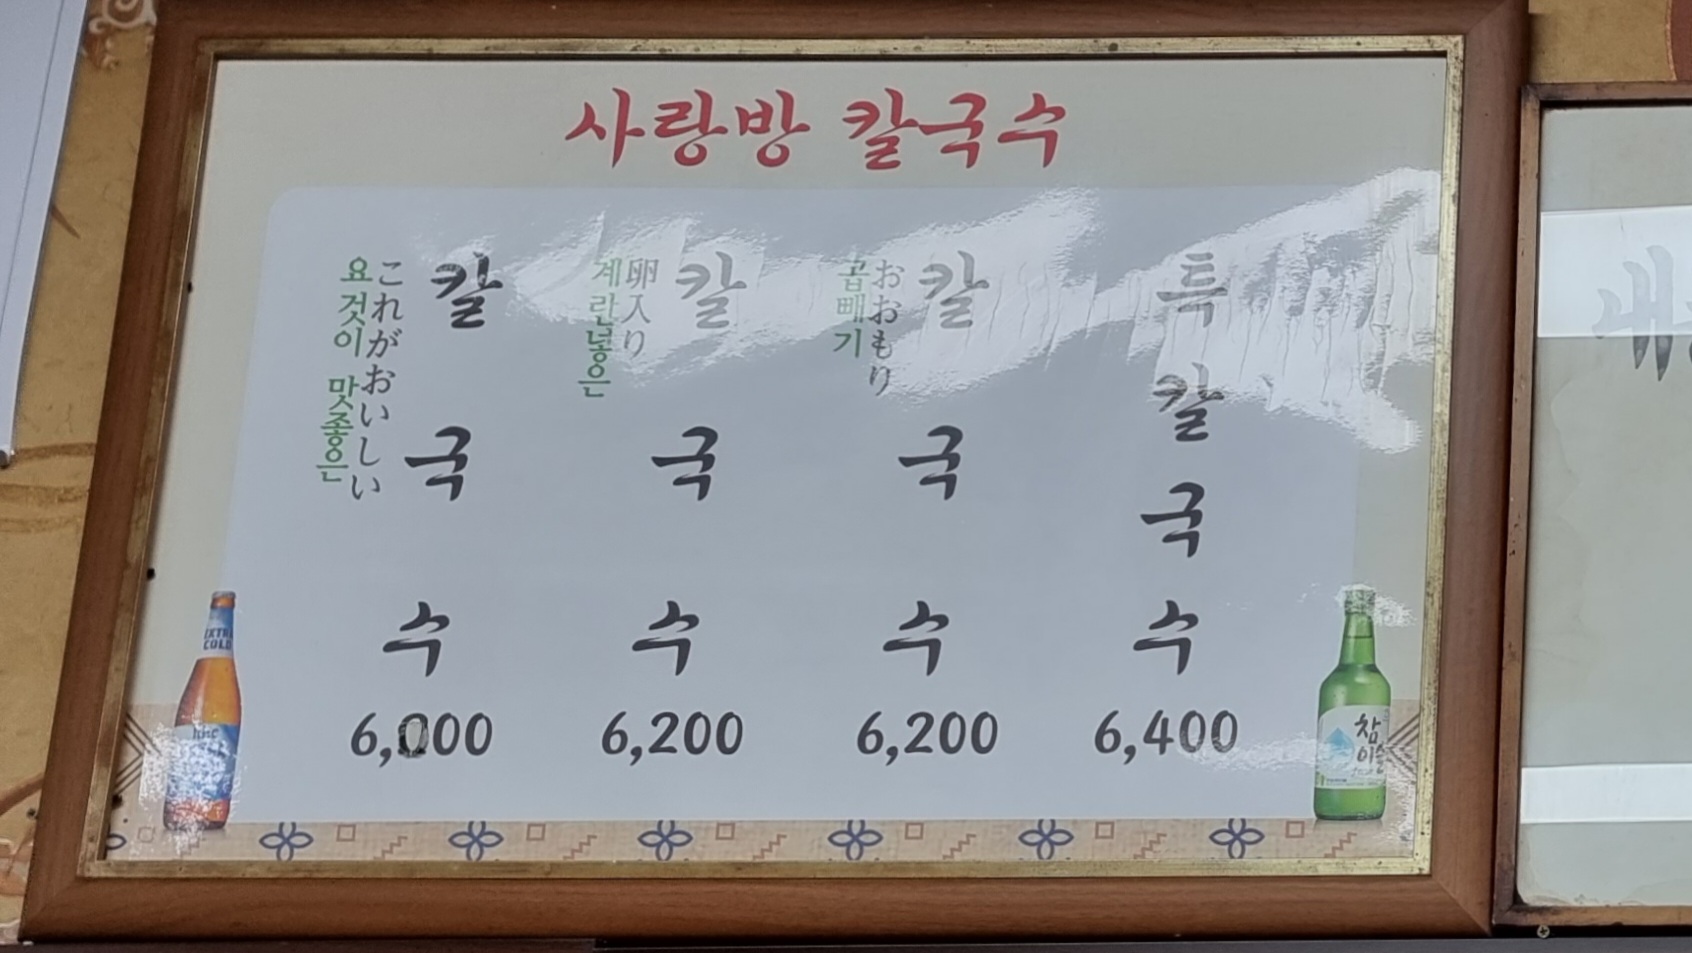 사랑방 칼국수
요것이 맛좋은
これがおいしい
칼국수
6,000
계란넣은
卵入り
칼국수
6,200
곱빼기
おおもり
칼국수
6,200
특칼국수
6,400
EXTRA
COLD
참
이슬